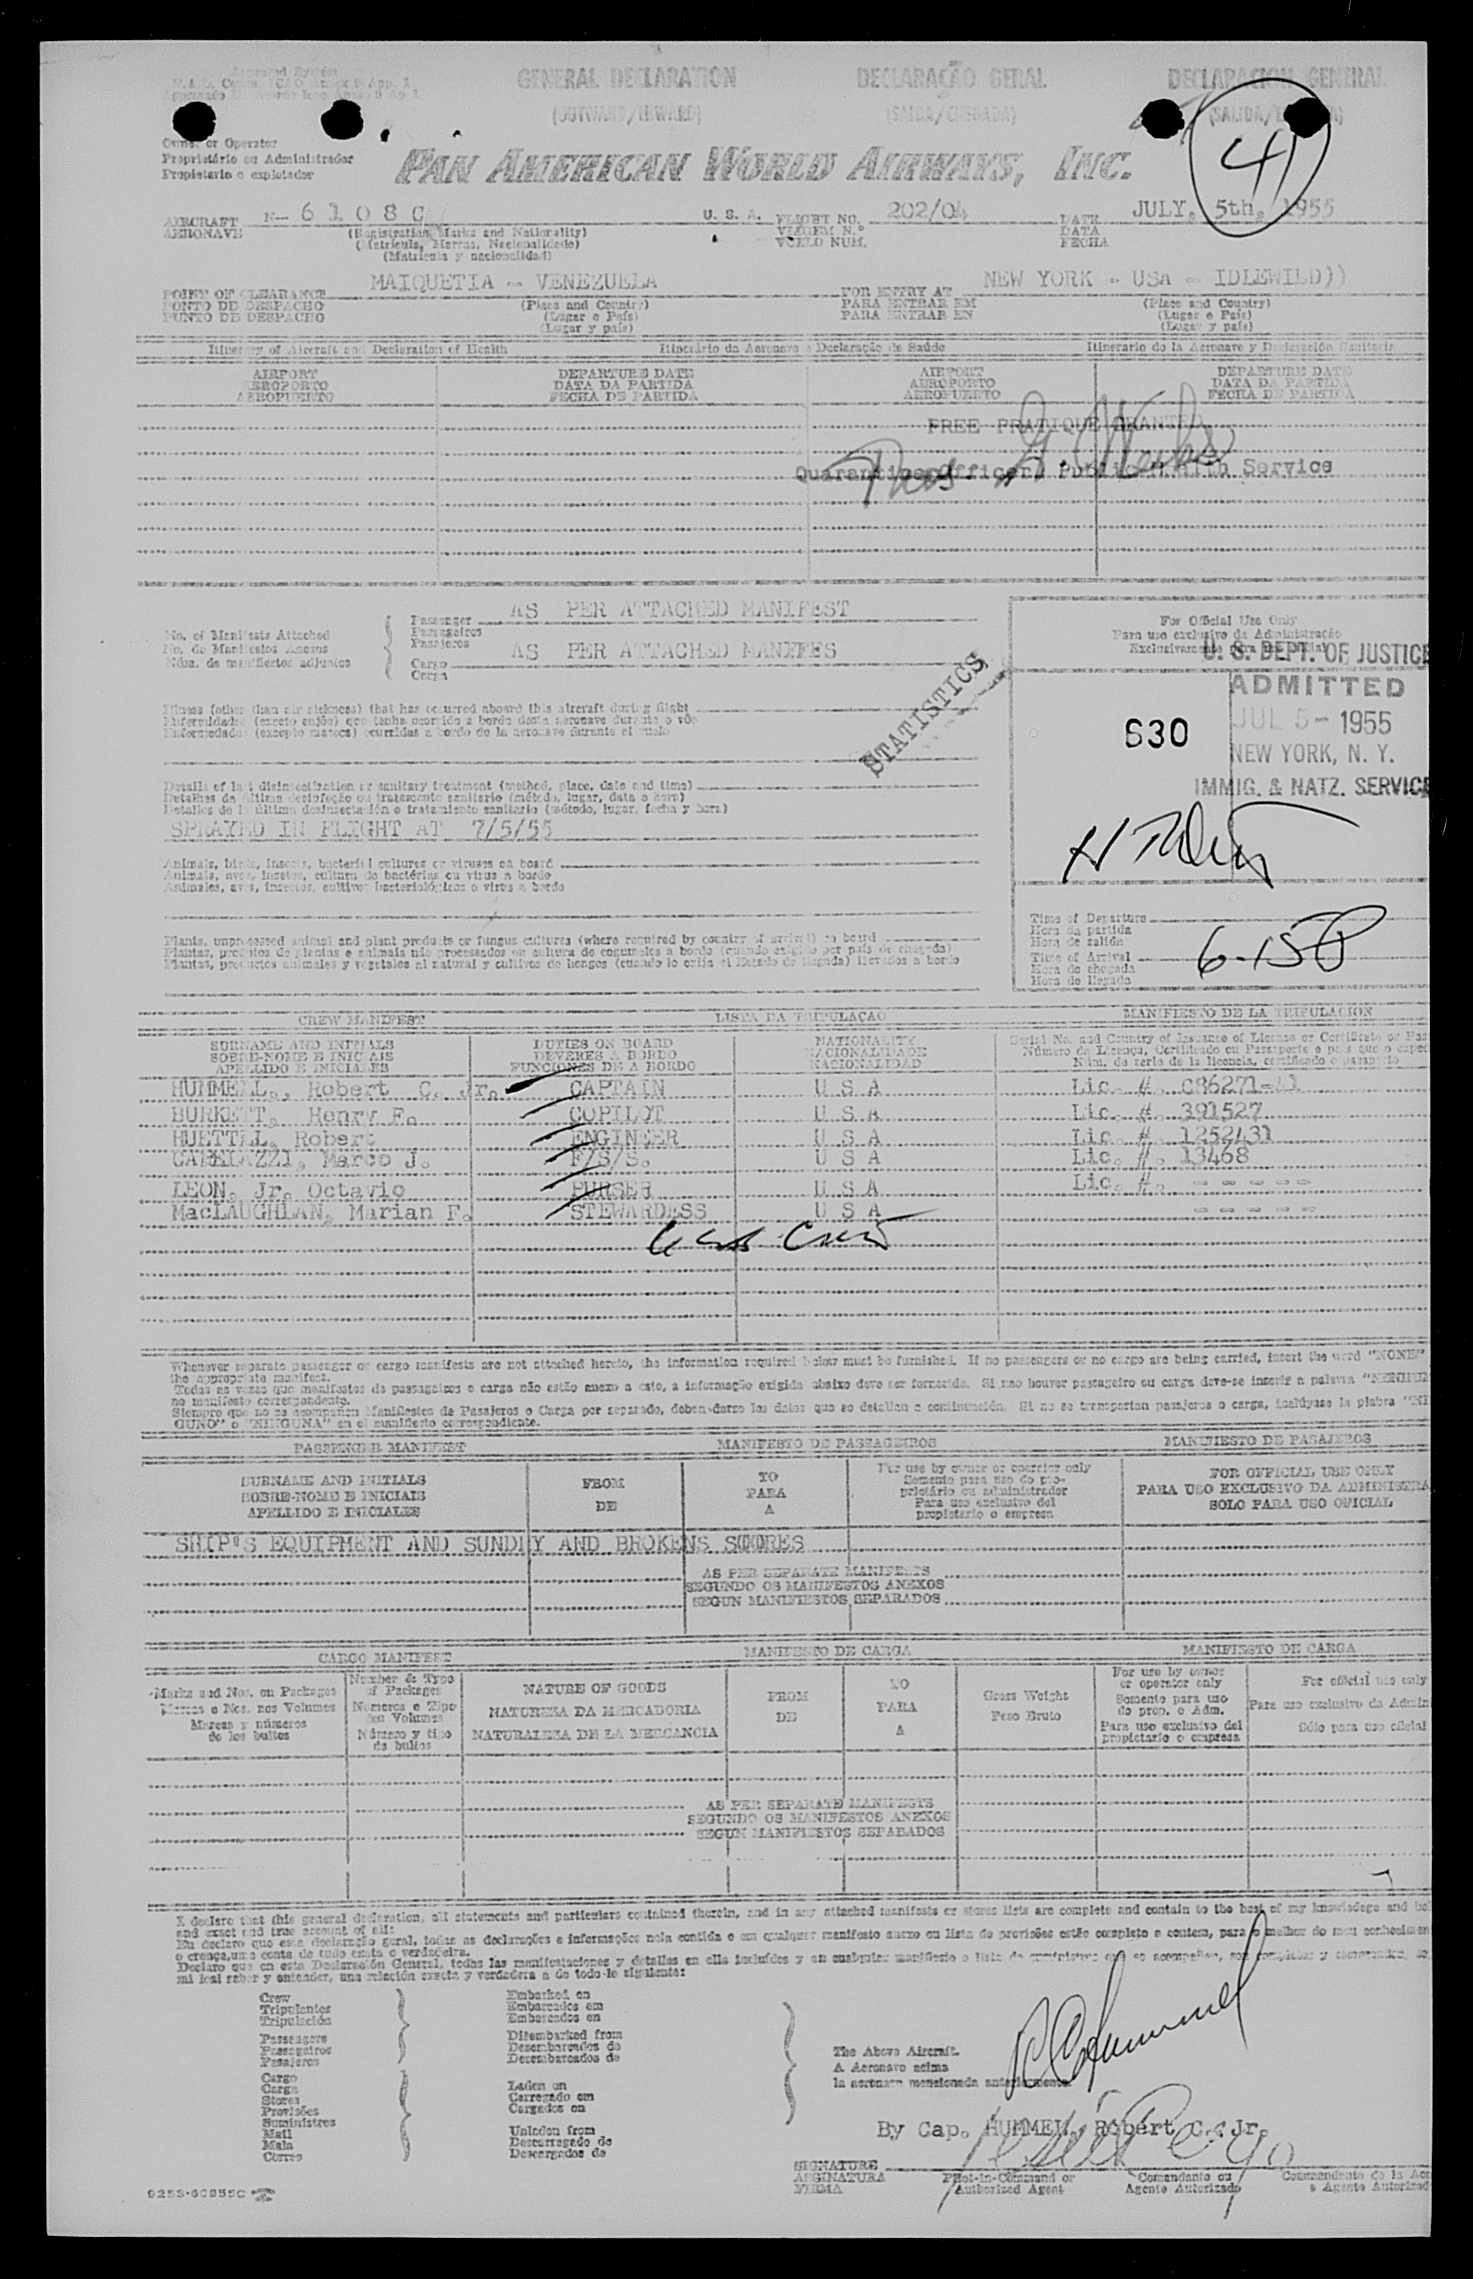 GENERAL DECLARATION DECLARAÇÃO GERAL DECLARACION GENERAL
(OUTWARD/INWARD) (SAIDA/CHEGADA) (SALIDA/
41
Owner or Operator
Proprietário ou Administrador
Propietario o explotador
PAN AMERICAN WORLD AIRWAYS, INC.
AIRCRAFT N- 6108C U. S. A. FLIGHT NO. 202/04 DATE JULY, 5th, 1955
AERONAVE (Registration, Marks and Nationality) VIAGEM N.º DATA
(Matricula, Marcas, Nacionalidade) VUELO NUM. FECHA
(Matrícula y nacionalidad)
MAIQUETIA - VENEZUELA NEW YORK - USA - IDLEWILD))
POINT OF CLEARANCE FOR ENTRY AT
PONTO DE DESPACHO (Place and Country) PARA ENTRAR EM (Place and Country)
PUNTO DE DESPACHO (Lugar e País) PARA ENTRAR EN (Lugar e País)
(Lugar y país) (Lugar y país)
Itinerary of Aircraft and Declaration of Health Itinerário da Aeronave e Declaração de Saúde Itinerario de la Aeronave y Declaración Sanitaria
AIRPORT DEPARTURE DATE AIRPORT DEPARTURE DATE
AEROPORTO DATA DA PARTIDA AEROPORTO DATA DA PARTIDA
AEROPUERTO FECHA DE PARTIDA AEROPUERTO FECHA DE PARTIDA
FREE PRATIQUE GRANTED
Quarantine Officer, Public Health Service
AS PER ATTACHED MANIFEST
No. of Manifests Attached Passenger
No. de Manifestos Anexos Passageiros
Núm. de manifiestos adjuntos Pasajeros
AS PER ATTACHED MANIFES
Cargo
Carga
For Official Use Only
Para uso exclusivo da Administração
U. S. DEPT. OF JUSTICE
ADMITTED
JUL 5 - 1955
NEW YORK, N. Y.
IMMIG. & NATZ. SERVICE
630
STATISTICS
Illness (other than air sickness) that has occurred aboard this aircraft during flight
Enfermidades (exceto enjôo) que tenha ocorrido a bordo desta aeronave durante o vôo
Enfermedades (excepto mareos) ocurridas a bordo de la aeronave durante el vuelo
Details of last disinsectization or sanitary treatment (method, place, date and time)
Detalhes da última desinfeção ou tratamento sanitario (método, lugar, data e hora)
Detalles de la última desinsectación o tratamiento sanitario (método, lugar, fecha y hora)
SPRAYED IN FLIGHT AT 7/5/55
Animals, birds, insects, bacterial cultures or viruses on board
Animais, aves, insetos, cultura de bactérias ou virus a bordo
Animales, aves, insectos, cultivos bacteriológicos o virus a bordo
Plants, unprocessed animal and plant products or fungus cultures (where required by country of arrival) on board
Plantas, produtos de plantas e animais não processados ou cultura de cogumelos a bordo (quando exigido por país de chegada)
Plantas, productos animales y vegetales al natural y cultivos de hongos (cuando lo exija el Estado de llegada) llevados a bordo
Time of Departure
Hora da partida
Hora de salida
Time of Arrival
Hora de chegada
Hora de llegada
6-15P
CREW MANIFEST LISTA DA TRIPULAÇAO MANIFIESTO DE LA TRIPULACION
SURNAME AND INITIALS DUTIES ON BOARD NATIONALITY Serial No. and Country of Issuance of License or Certificate or Pas
SOBRE-NOME E INICIAIS DEVERES A BORDO NACIONALIDADE
APELLIDO E INICIALES FUNCIONES DE A BORDO NACIONALIDAD
HUMMEL., Robert C. Jr. CAPTAIN U S A Lic. #. C86271-41
BURKETT, Henry F. COPILOT U S A Lic. #. 391527
HUETTEL, Robert ENGINEER U S A Lic. #. 1252431
CAPELAZZI, Marco J. F/S/S. U S A Lic. #. 13468
LEON, Jr. Octavio PURSER U S A Lic. #. - - - - -
MacLAUGHLAN, Marian F. STEWARDESS U S A - - - - -
Whenever separate passenger or cargo manifests are not attached hereto, the information required below must be furnished. If no passengers or no cargo are being carried, insert the word "NONE"
the appropriate manifest.
Todas as vezes que manifestos de passageiros e carga não estão anexo a este, a informação exigida abaixo deve ser fornecida. Si nao houver passageiro ou carga deve-se inserir a palavra
no manifesto correspondente.
Siempre que no se acompañen Manifiestos de Pasajeros o Carga por separado, deben darse los datos que se detallan a continuación. Si no se transportan pasajeros o carga, inclúyase la plabra
GUNO" o "NINGUNA" en el manifiesto correspondiente.
PASSENGER MANIFEST MANIFESTO DE PASSAGEIROS MANIFIESTO DE PASAJEROS
SURNAME AND INITIALS FROM TO For use by owner or operator only FOR OFFICIAL USE ONLY
SOBRE-NOME E INICIAIS DE PARA Somente para uso do proprietário ou administrador PARA USO EXCLUSIVO DA ADMINISTRA
APELLIDO E INICIALES A Para uso exclusivo del propietario o empresa SOLO PARA USO OFICIAL
SHIP'S EQUIPMENT AND SUNDRY AND BROKENS STORES
AS PER SEPARATE MANIFESTS
SEGUNDO OS MANIFESTOS ANEXOS
SEGUN MANIFIESTOS SEPARADOS
CARGO MANIFEST MANIFESTO DE CARGA MANIFIESTO DE CARGA
Marks and Nos. on Packages Number & Type of Packages NATURE OF GOODS FROM TO Gross Weight For use by owner or operator only For official use only
Marcas e Nos. nos Volumes Números e Tipo dos Volumes NATUREZA DA MERCADORIA DE PARA Peso Bruto Somente para uso do prop. o Adm. Para uso exclusivo da Admin
Marcas y números de los bultos Número y tipo de bultos NATURALEZA DE LA MERCANCIA A Para uso exclusivo del propietario o empresa Sólo para uso oficial
AS PER SEPARATE MANIFESTS
SEGUNDO OS MANIFESTOS ANEXOS
SEGUN MANIFIESTOS SEPARADOS
I declare that this general declaration, all statements and particulars contained therein, and in any attached manifests or stores lists are complete and contain to the best of my knowledge and bel
and exact and true account of all:
Eu declaro que esta declaração geral, todas as declarações e informações nela contida e em qualquer manifesto anexo ou lista de provisões estão completo e contem, para o melhor do meu conhecimen
e crença, uma conta de tudo exata e verdadeira.
Declaro que en esta Declaración General, todas las manifestaciones y detalles en ella incluídos y en cualquier manifiesto o lista de
mi leal saber y entender, una relación exacta y verdadera a de todo lo siguiente:
Crew Embarked on
Tripulantes Embarcados em
Tripulación Embarcados en
Passengers Disembarked from
Passageiros Desembarcados do
Pasajeros Desembarcados de
Cargo Laden on
Carga Carregado em
Stores Cargados en
Provisões
Suministros
Mail Unladen from
Mala Descarregado do
Correo Descargados de
The Above Aircraft.
A Aeronave acima
la aeronave mencionada anteriormente
By Cap. HUMMEL, Robert C. Jr.
SIGNATURE
ASSINATURA Pilot-in-Command or Comandante ou
FIRMA Authorized Agent Agente Autorizado